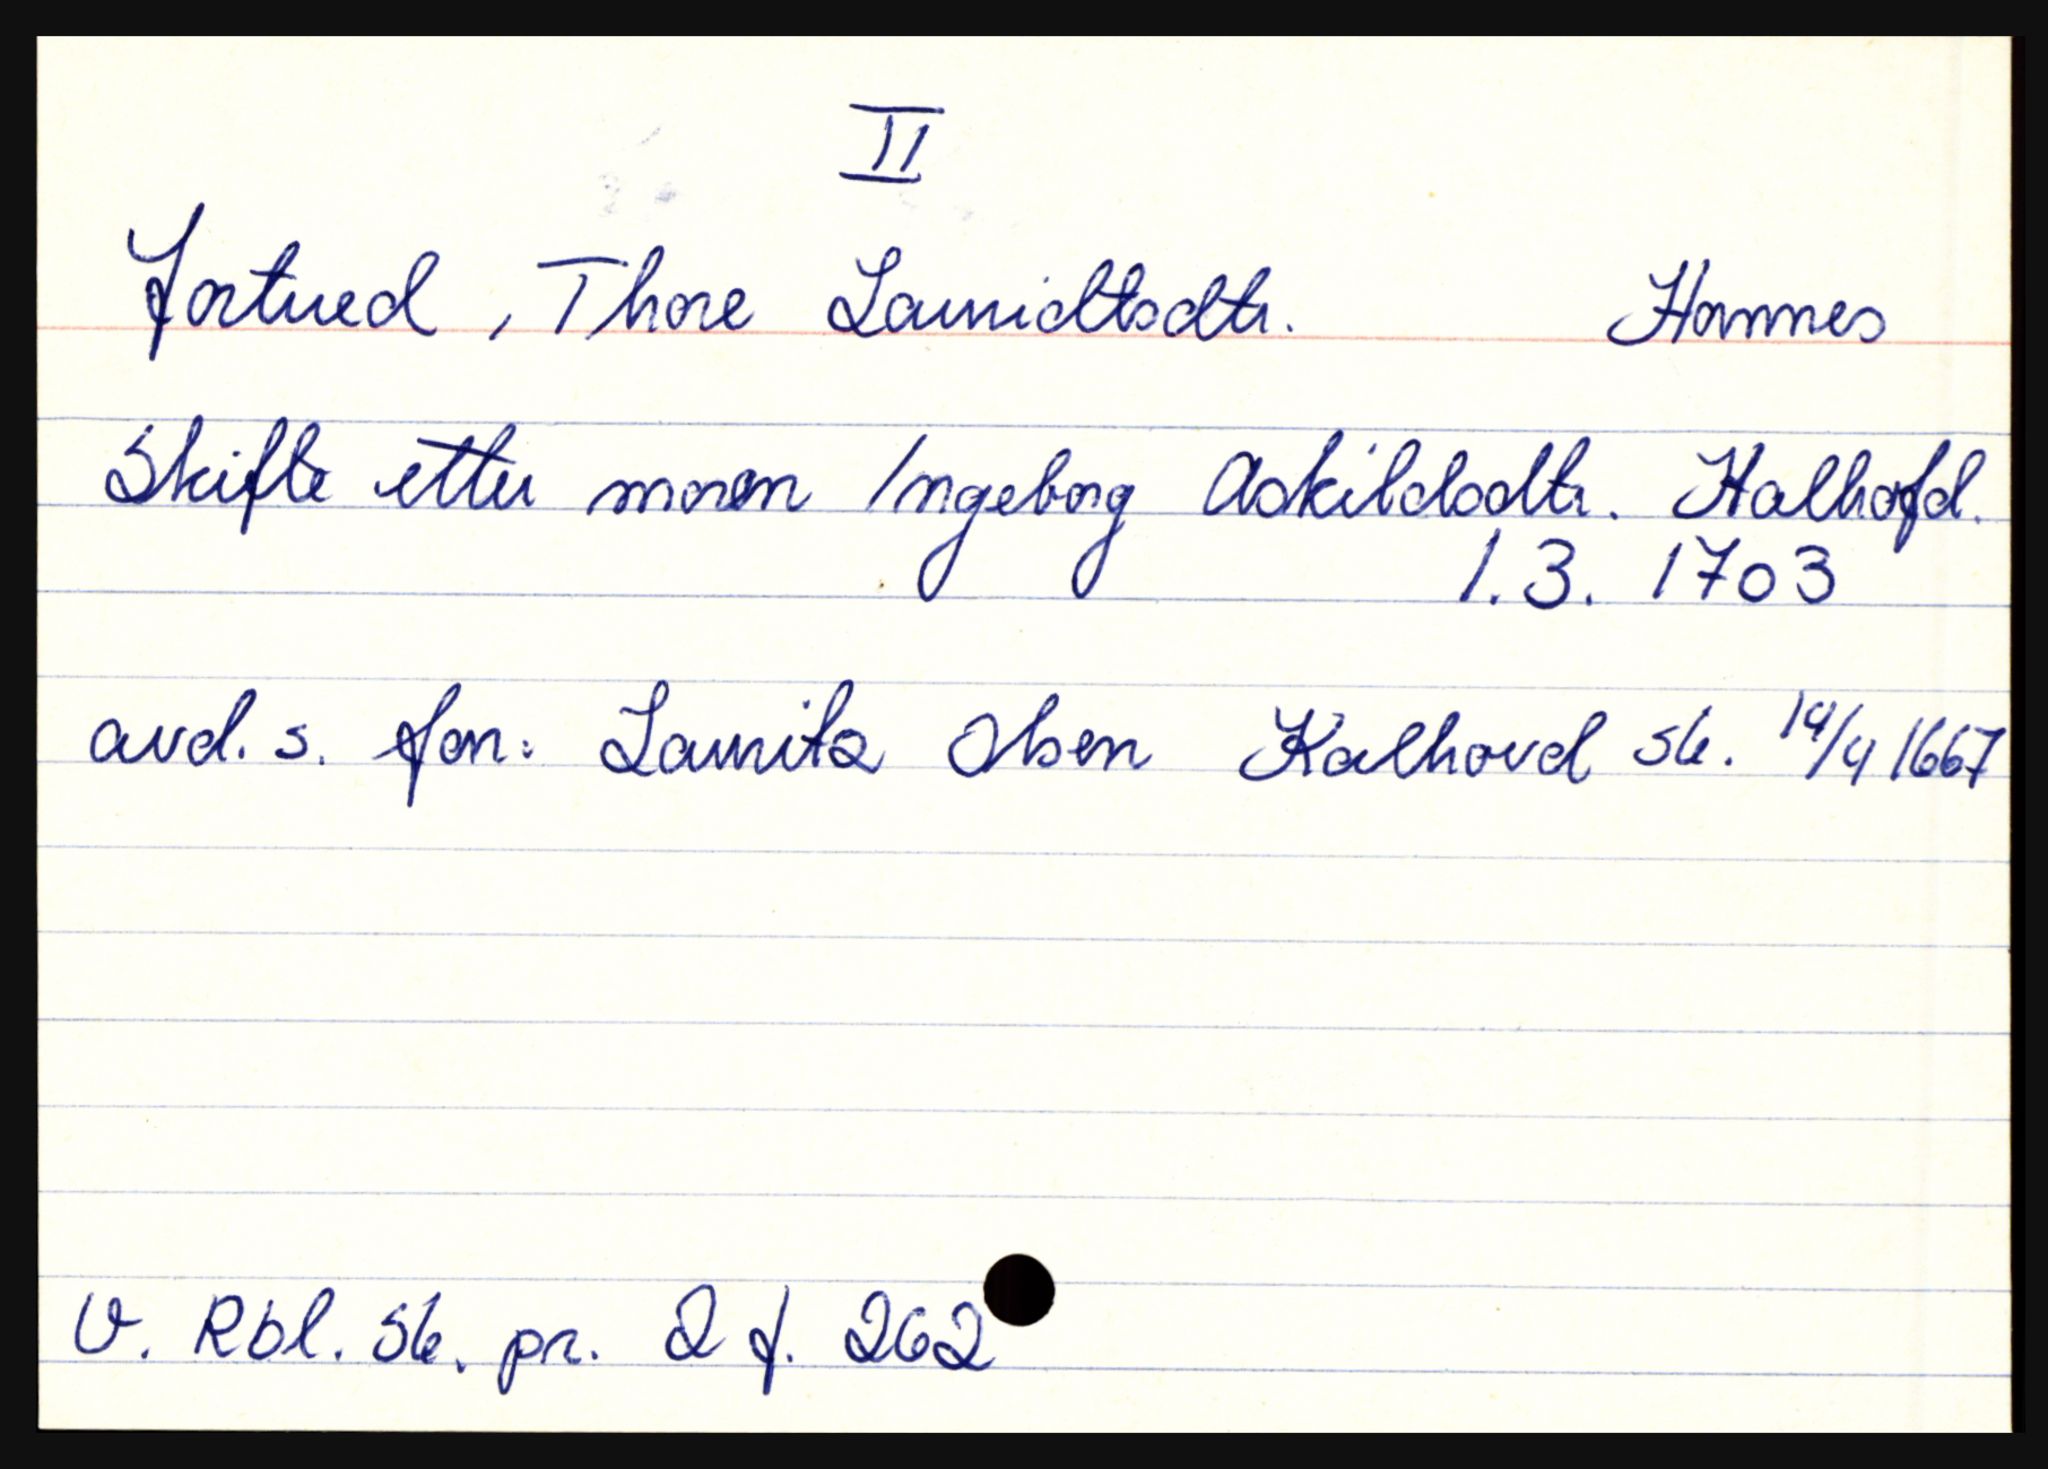 II
Fortued, Thore Lauridtsdtr. Homnes
Skifte etter moren Ingeborg Askildsdtr. Kalhofd.
1.3. 1703
avd. s. far: Lauritz Olsen Kalhovd sk. 14/4 1667
V. Rbl. sk. pr. 2 f. 262